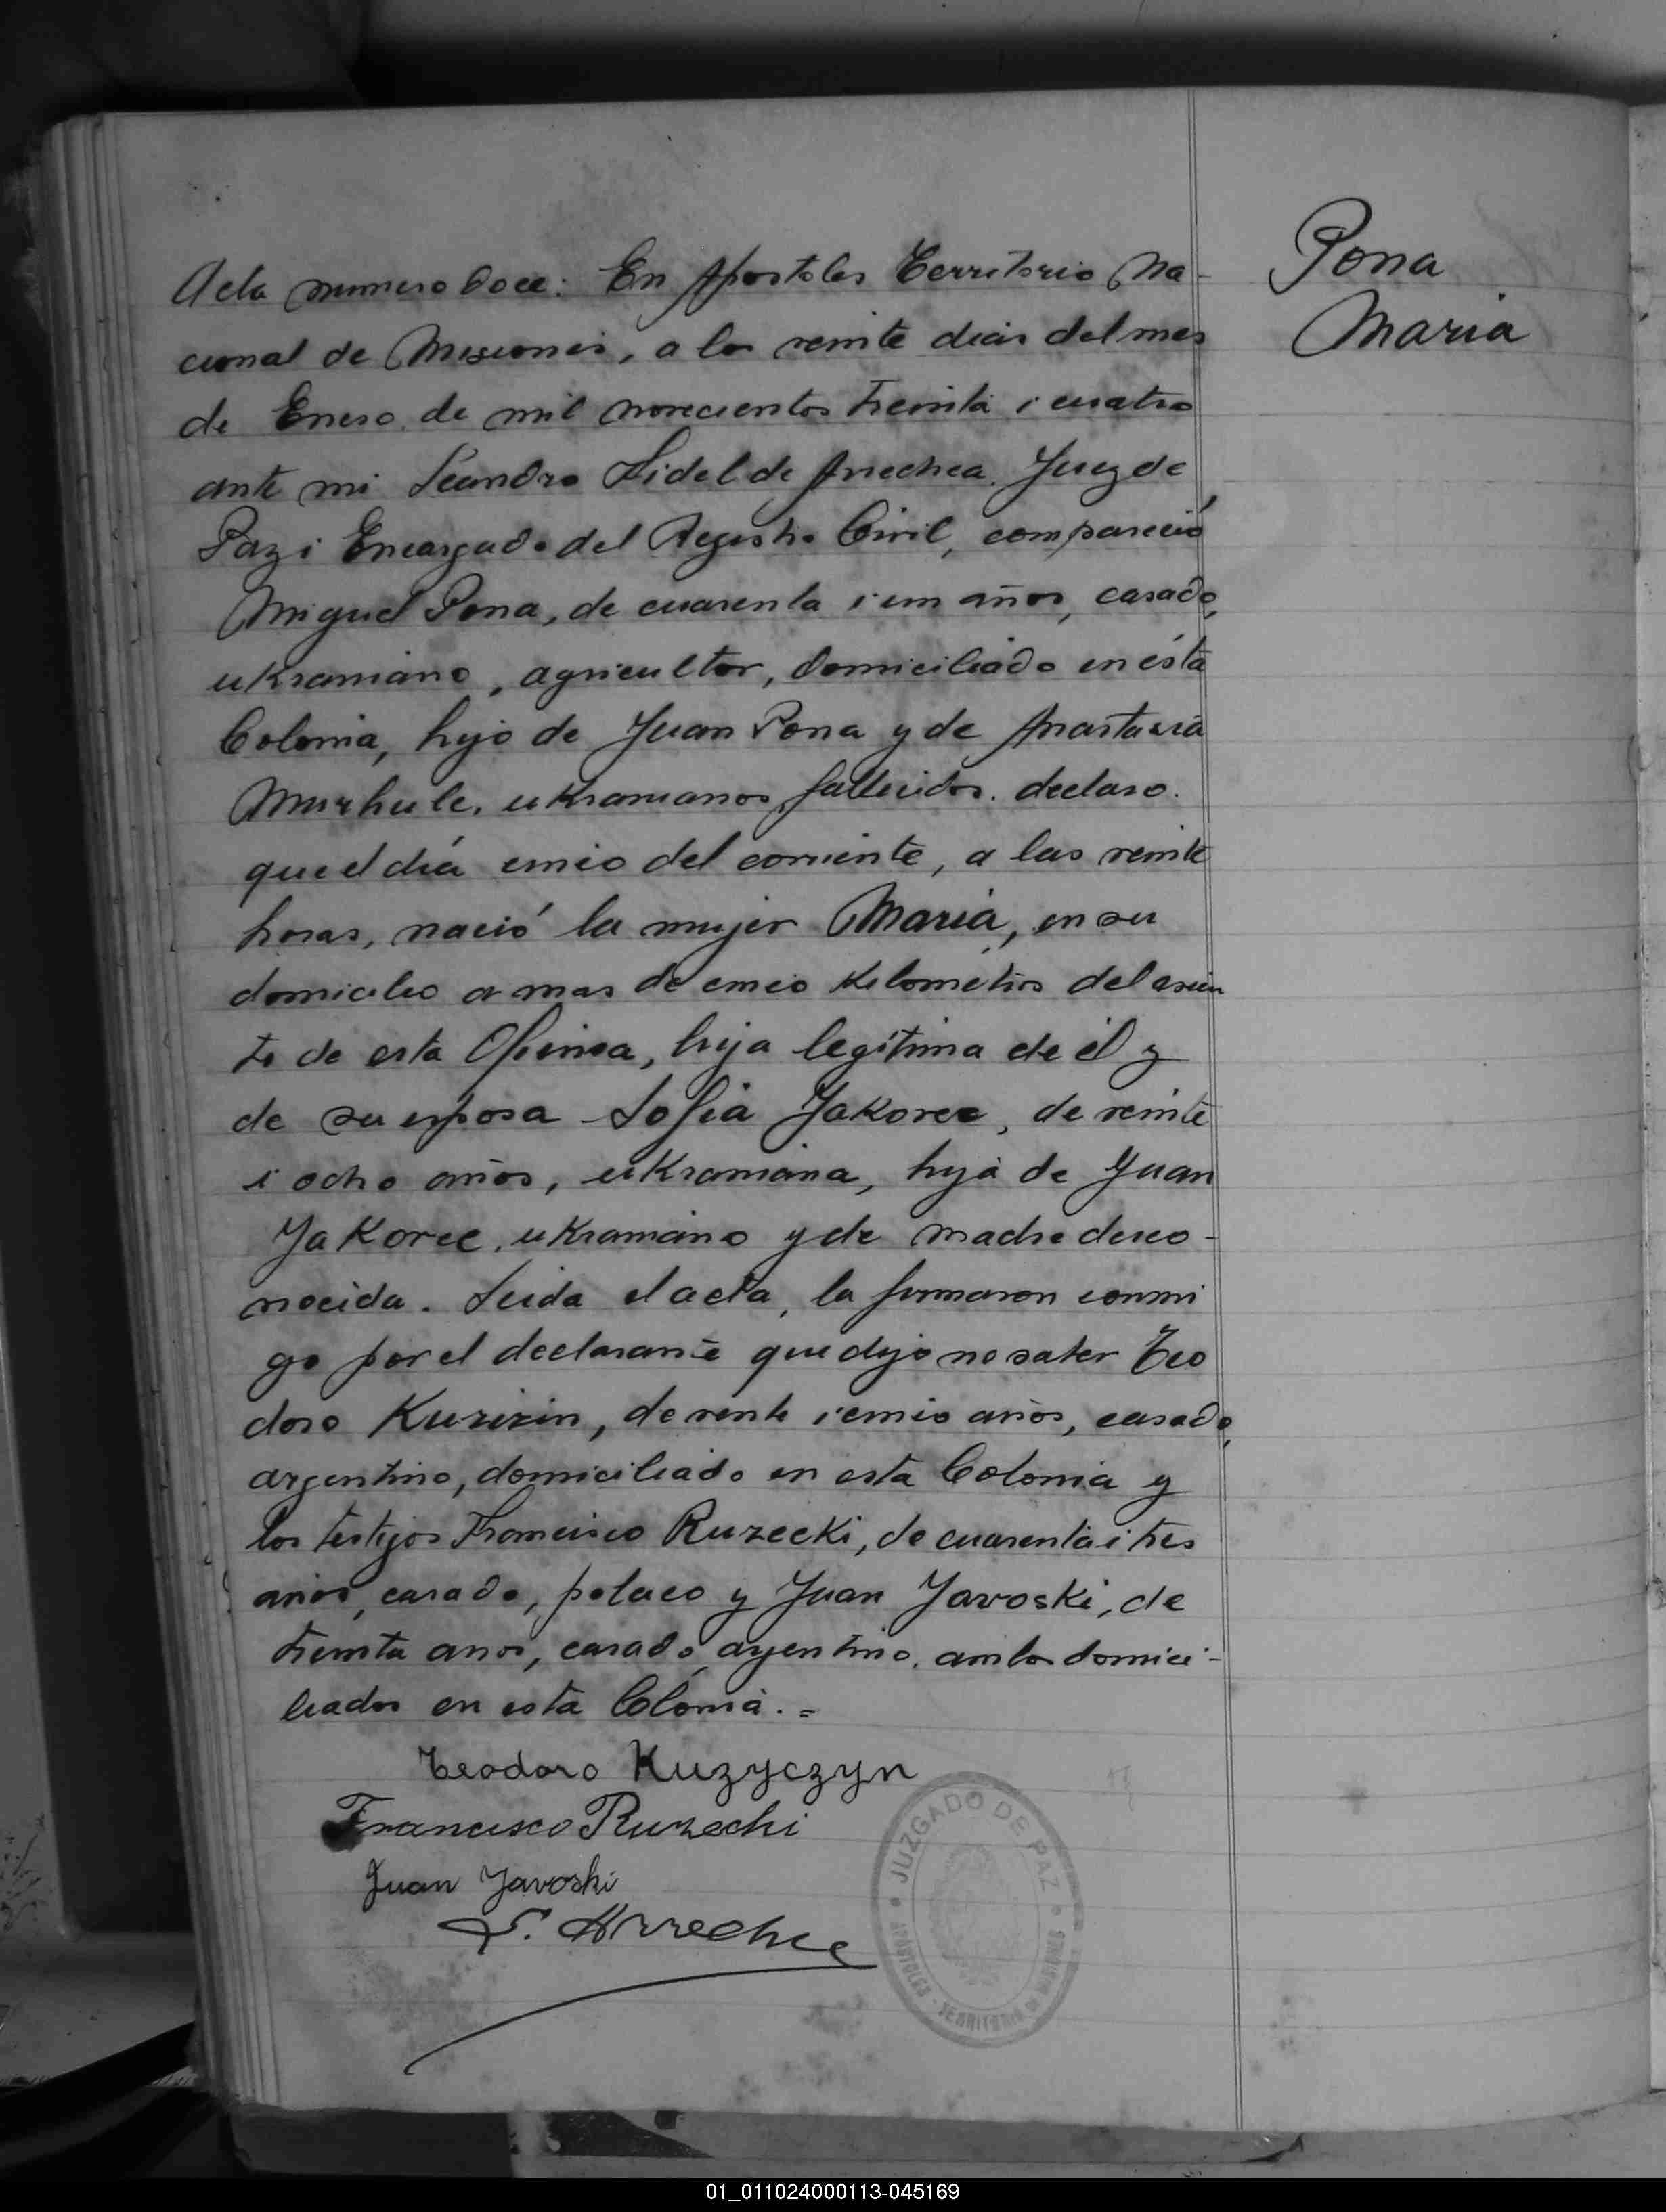 Pona
Maria
Acta numero Doce: En Apostoles Territorio Na-
cional de Misiones, a los veinte dias del mes
de Enero de mil novecientos treinta i cuatro
ante mi Leandro Fidel de Arrechea Juez de
Paz i Encargado del Registro Civil, compareció
Miguel Pona, de cuarenta i un años, casado,
ukraniano, agricultor, domiciliado en ésta
Colonia, hijo de Juan Pona y de Anastasia
ukranianos, fallecidos. declaro.
que el día cinco del corriente, a las veinte
horas, nació la mujer Maria, en su
domicilio a mas de cinco kilometros del asien
to de esta Oficina, hija legítima de él y
de su esposa Sofia Jakovec, de veinte
i ocho años, ukraniana, hija de Juan
Jakovec, ukraniano y de madre desco-
nocida. Leida el acta, la firmaron conmi
go por el declarante que dijo no saber Teo
doro Kuzizin, de veinte i cinco años, casado,
argentino, domiciliado en esta Colonia y
los testigos Francisco Ruzecki, de cuarenta i tres
años, casado, polaco y Juan Javoski, de
treinta anos, casado, argentino, ambos domici-
liados en esta Colonia. =
Teodoro Kuzyczyn
Francisco Ruzecki
Juan Javoski
L. Arrechea
JUZGADO DE PAZ
APOSTOLES - TERRITORIO DE MISIONES
01_011024000113-045169